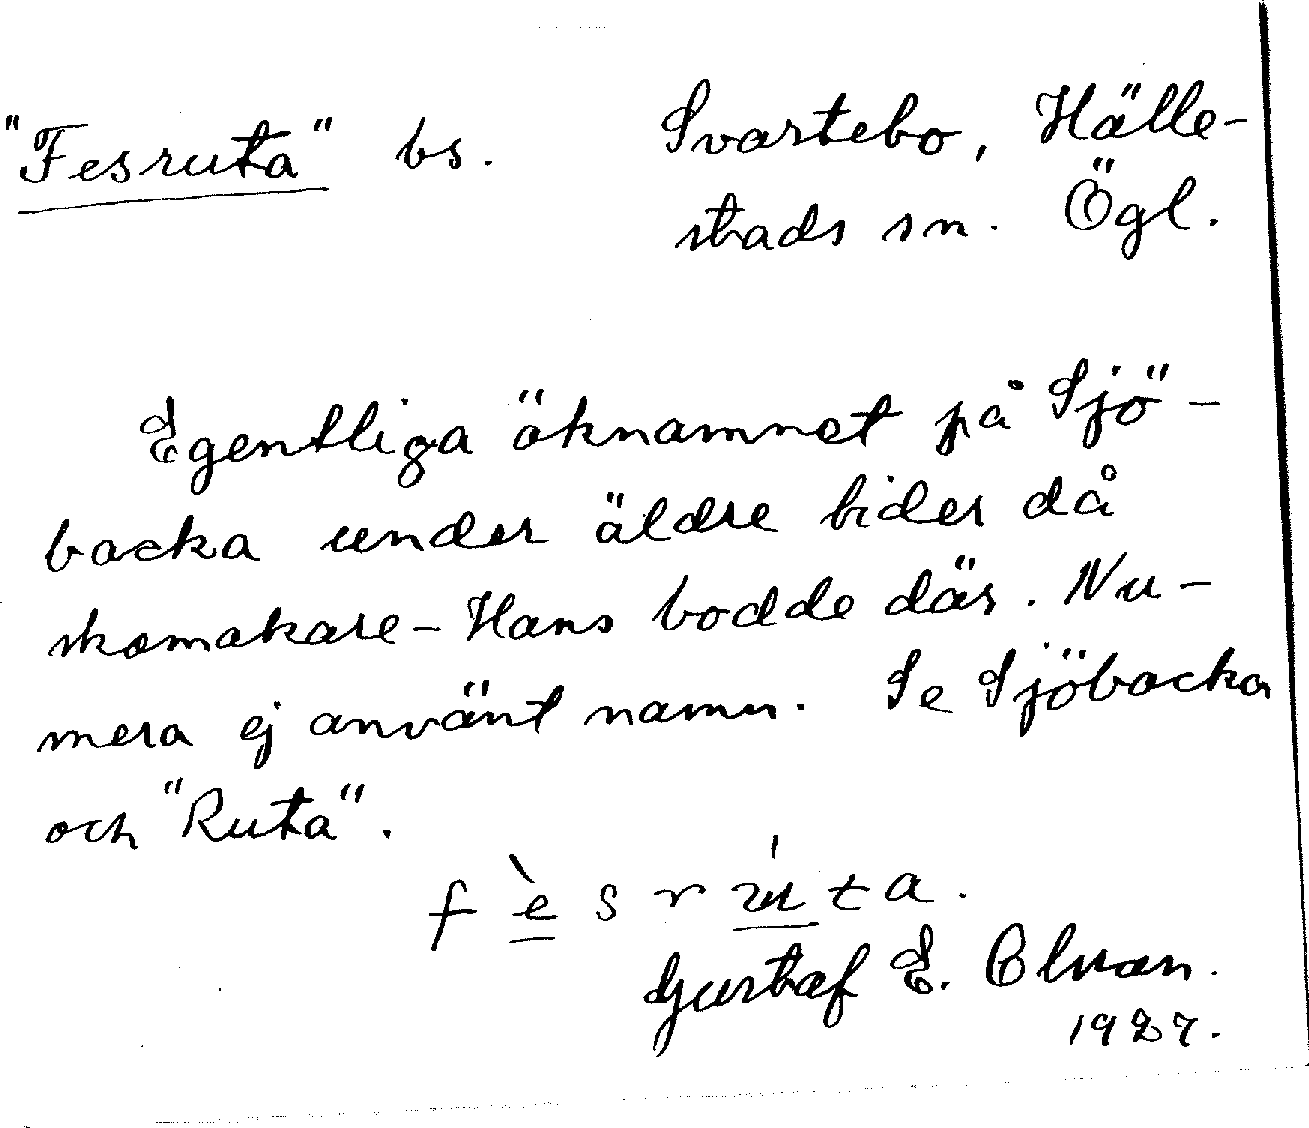 "Fesruta" bs. Svartebo, Hälle-
stads sn. Ögl.
Egentliga öknamnet på Sjö-
backa under äldre tider då
skomakare-Hans bodde där. Nu-
mera ej använt namn. Se Sjöbacka
och "Ruta".
f è s r ú t a.
Gustaf E.
1927.